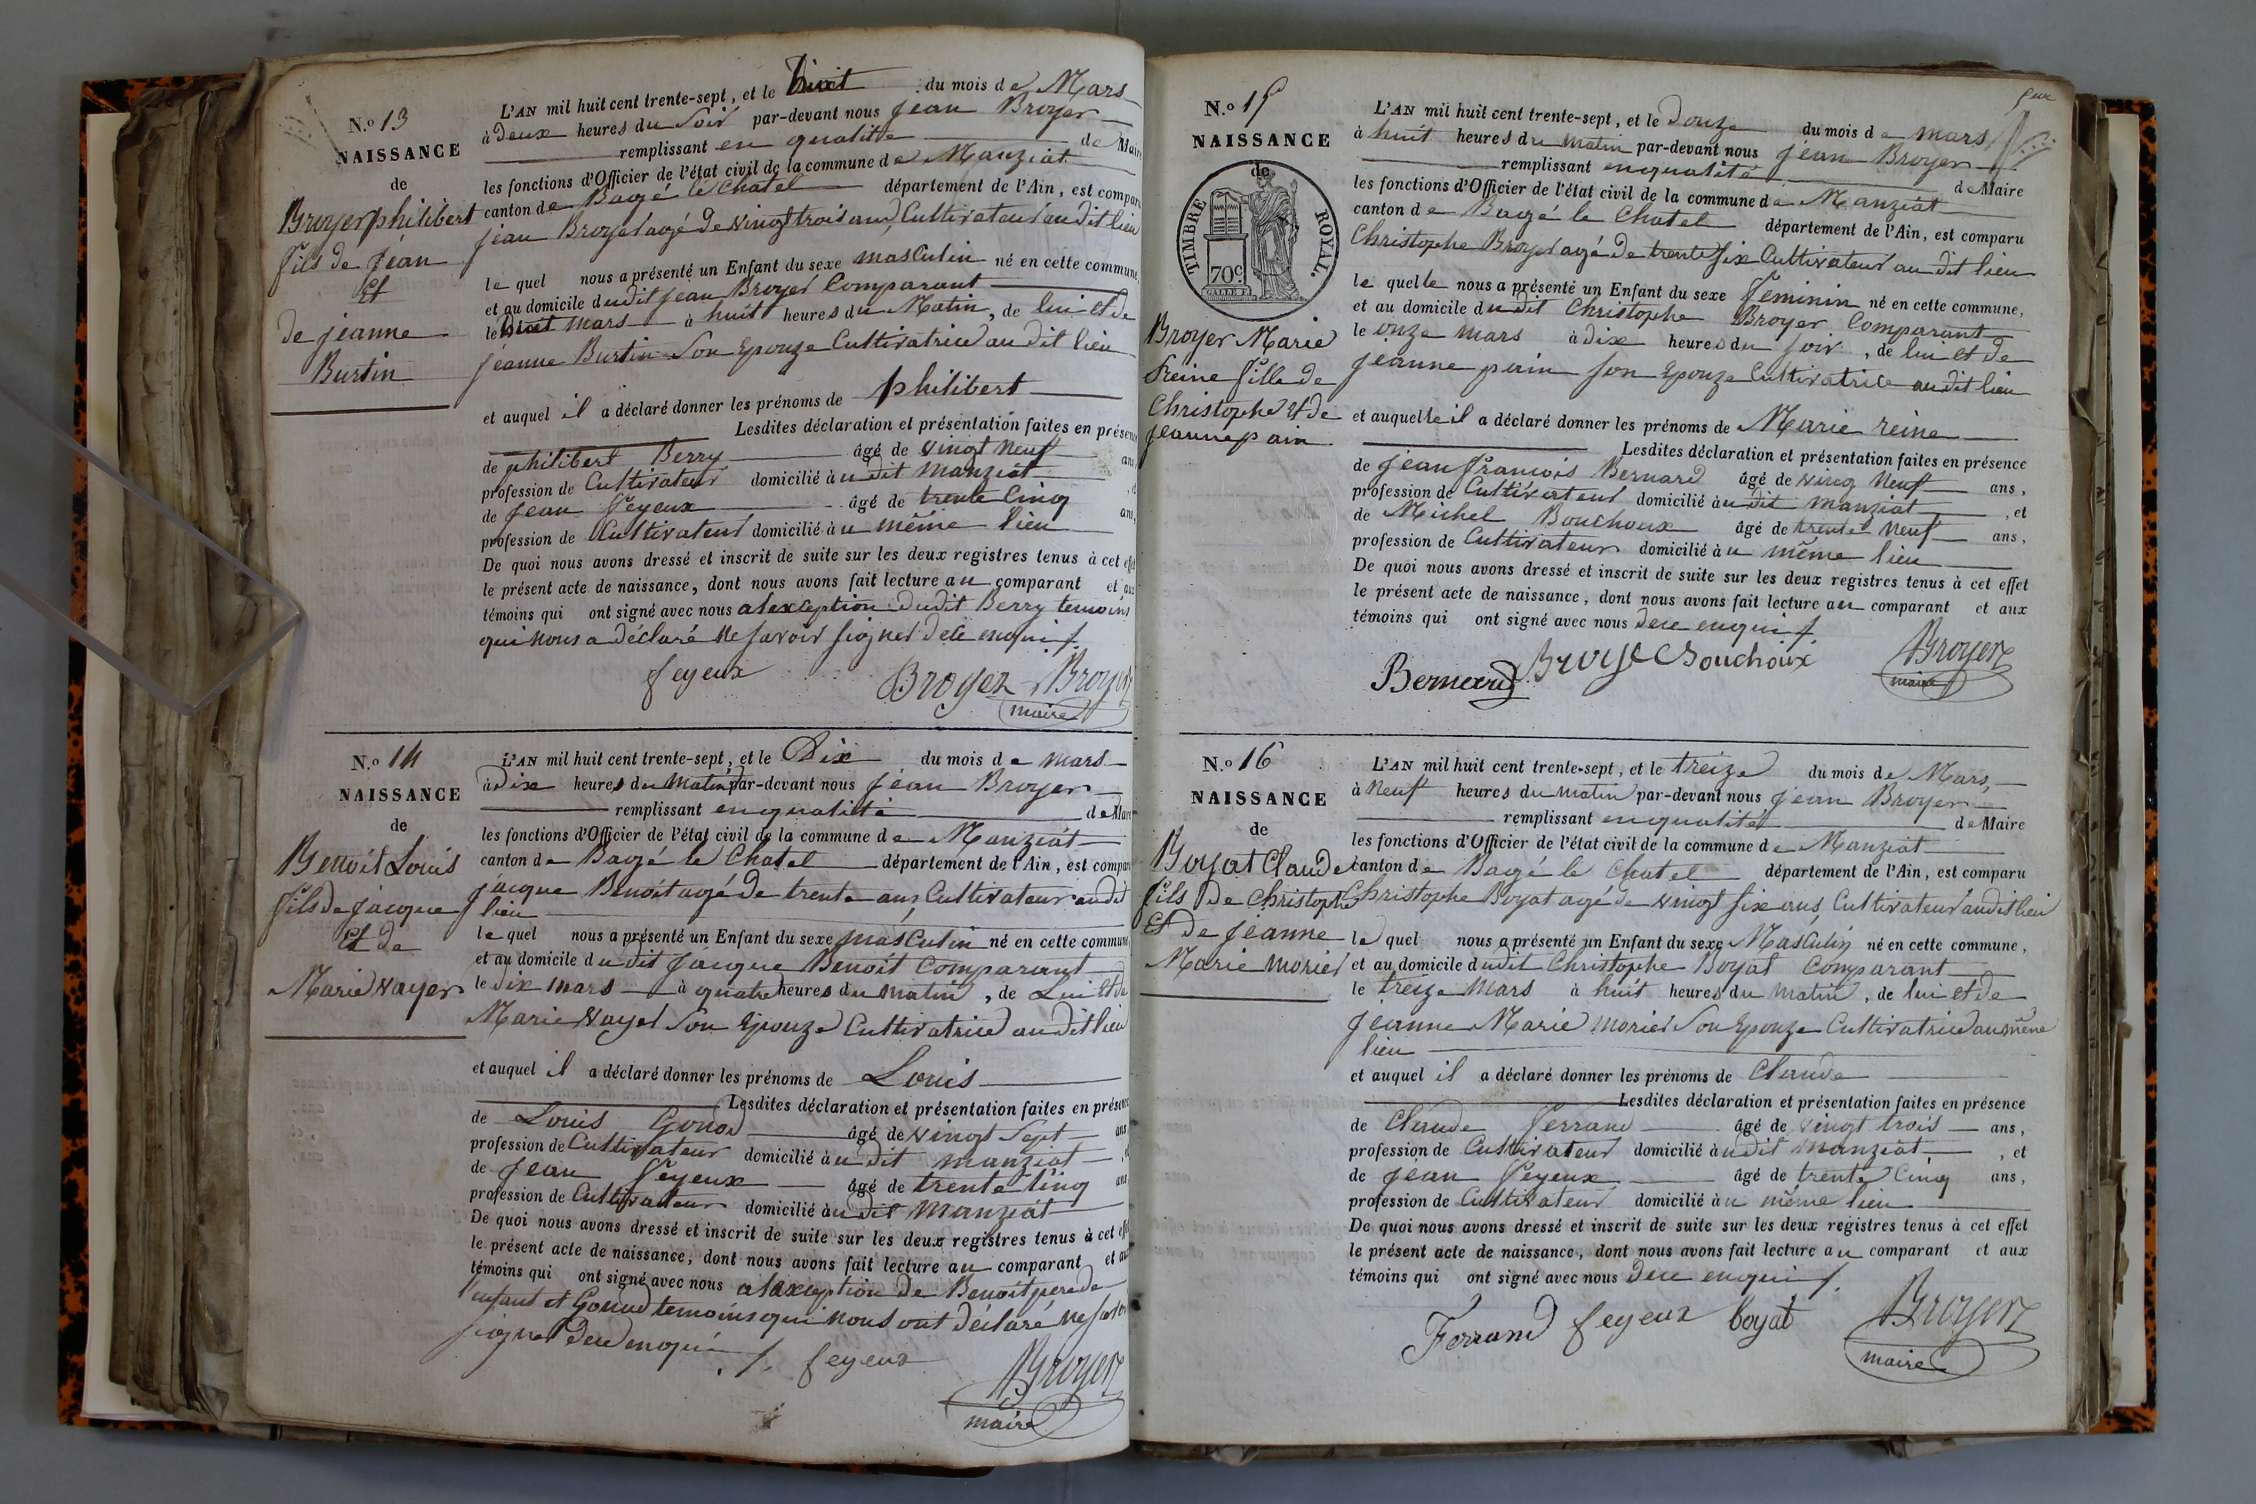 N.º 13
NAISSANCE
de
Broyer philibert
fils de Jéan
Et
de jeanne
Burtin
L'AN mil huit cent trente-sept, et le huit du mois de Mars
à deux heures du Soir par-devant nous Jean Broyer
remplissant en qualité de Maire
les fonctions d'Officier de l'état civil de la commune de Manziat
canton de Bagé le Chatel département de l'Ain, est comparu
jean Broyer agé de vingt trois ans, Cultivateur au dit lieu
le quel nous a présenté un Enfant du sexe masculin né en cette commune,
et au domicile dudit jean Broyer Comparant
le huit mars à huit heures du Matin, de lui et de
jeanne Burtin Son Epouze Cultivatrice au dit lieu
et auquel il a déclaré donner les prénoms de philibert
Lesdites déclaration et présentation faites en présence
de philibert Berry âgé de vingt Neuf ans
profession de Cultivateur domicilié à udit Manziat
de Jean feyeux âgé de trente Cinq ans,
profession de Cultivateur domicilié à u même lieu
De quoi nous avons dressé et inscrit de suite sur les deux registres tenus à cet effet
le présent acte de naissance, dont nous avons fait lecture au comparant et aux
témoins qui ont signé avec nous alexception dudit Berry temoins
qui nous a déclaré ne savoir signer de ce enquis
feyeux Broyer Broyer
maire
N.º 14
NAISSANCE
de
Benoit Louis
fils de jacque
Et de
Marie Nayer
L'AN mil huit cent trente-sept, et le Dix du mois de mars
à dix heures du matin par-devant nous Jéan Broyer
remplissant en qualité de Maire
les fonctions d'Officier de l'état civil de la commune de Manziat
canton de Bagé le Chatel département de l'Ain, est comparu
jacque Benoit agé de trente ans Cultivateur audit
lieu
le quel nous a présenté un Enfant du sexe masculin né en cette commune
et au domicile dudit jacque Benoit Comparant
le dix mars à quatre heures du matin, de Lui et de
Marie Nayel Son Epouze Cultivatrice au dit lieu
et auquel il a déclaré donner les prénoms de Louis
Lesdites déclaration et présentation faites en présence
de Louis Gonod âgé de vingt Sept ans
profession de Cultivateur domicilié à udit manziat
de Jean feyeux âgé de trente Cinq ans
profession de Cultivateur domicilié à udit Manziat
De quoi nous avons dressé et inscrit de suite sur les deux registres tenus à cet effet
le présent acte de naissance, dont nous avons fait lecture au comparant et aux
témoins qui ont signé avec nous alexception de Benoit pere de
l'enfant et Gonod temoins qui nous ont déclaré ne savoir
signer de ce enquis
feyeux Broyer
maire
N.º 15
NAISSANCE
de
TIMBRE ROYAL.
70c.
Broyer Marie
Reine fille de
Christophe et de
jeanne pain
L'AN mil huit cent trente-sept, et le Douze du mois de mars
à huit heures du matin par-devant nous Jéan Broyer
remplissant en qualité de Maire
les fonctions d'Officier de l'état civil de la commune de Manziat
canton de Bagé le Chatel département de l'Ain, est comparu
Christophe Broyer agé de trente six Cultivateur au dit lieu
le quelle nous a présenté un Enfant du sexe feminin né en cette commune,
et au domicile dudit Christophe Broyer Comparant
le onze mars à dix heures du soir, de lui et de
jeanne pain son Epouze Cultivatrice au dit lieu
et auquelle il a déclaré donner les prénoms de Marie reine
Lesdites déclaration et présentation faites en présence
de jean francois Bernard âgé de ving Neuf ans,
profession de Cultivateur domicilié à udit manziat, et
de Michel Bouchoux âgé de trente Neuf ans,
profession de Cultivateur domicilié à u même lieu
De quoi nous avons dressé et inscrit de suite sur les deux registres tenus à cet effet
le présent acte de naissance, dont nous avons fait lecture au comparant et aux
témoins qui ont signé avec nous de ce enquis
Bernard Broyé Bouchoux Broyer
maire
N.º 16
NAISSANCE
de
Boyat Claude
fils de Christophe
Et de jéanne
Marie morier
L'AN mil huit cent trente-sept, et le treize du mois de Mars,
à Neuf heures du matin par-devant nous Jéan Broyer
remplissant en qualité de Maire
les fonctions d'Officier de l'état civil de la commune de Manziat
canton de Bagé le Chatel département de l'Ain, est comparu
Christophe Boyat agé de vingt six ans Cultivateur audit lieu
le quel nous a présenté un Enfant du sexe Masculin né en cette commune,
et au domicile dudit Christophe Boyat Comparant
le treize Mars à huit heures du matin, de lui et de
Jeanne Marie morier Son Epouze Cultivatrice au même
lieu
et auquel il a déclaré donner les prénoms de Claude
Lesdites déclaration et présentation faites en présence
de Claude ferrand âgé de vingt trois ans,
profession de Cultivateur domicilié à udit manziat, et
de Jean feyeux âgé de trente Cinq ans,
profession de Cultivateur domicilié à u même lieu
De quoi nous avons dressé et inscrit de suite sur les deux registres tenus à cet effet
le présent acte de naissance, dont nous avons fait lecture au comparant et aux
témoins qui ont signé avec nous de ce enquis
Ferrand feyeux boyat Broyer
maire